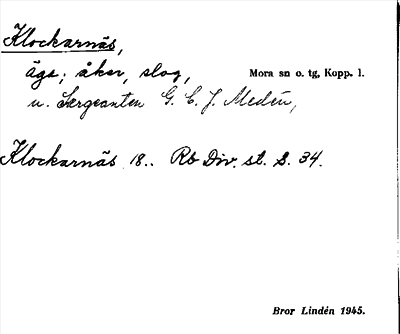 Klockarnäs,
äga; åker, slog, Mora sn o. tg, Kopp. l.
u. Sergeanten G. E. J. Medén,
Klockarnäs 18.. Rb Div. st. S. 34.
Bror Lindén 1945.